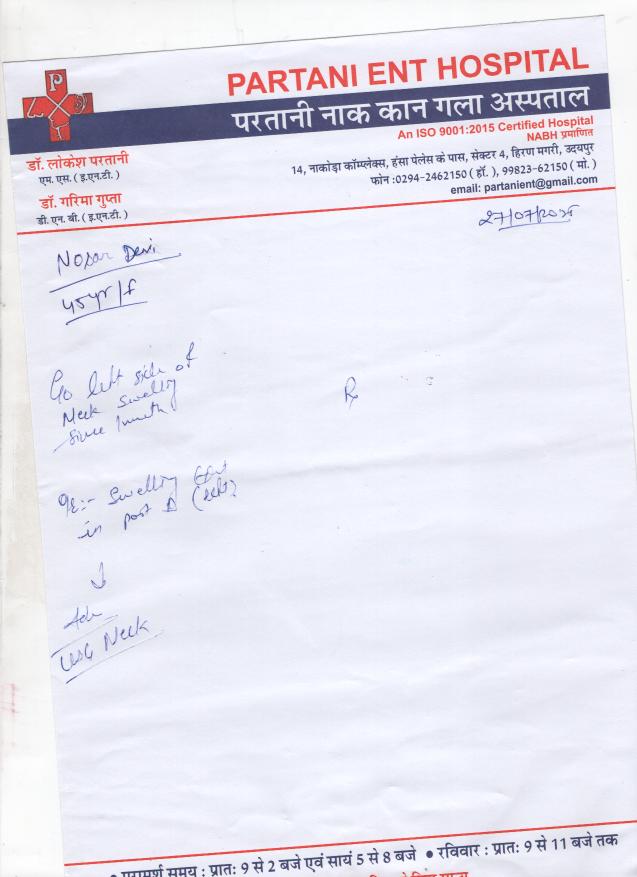 PARTANI ENT HOSPITAL
परतानी नाक कान गला अस्पताल
An ISO 9001:2015 Certified Hospital
NABH प्रमाणित
डॉ. लोकेश परतानी
एम. एस. ( इ.एन.टी. )
डॉ. गरिमा गुप्ता
डी. एन. बी. ( इ.एन.टी. )
14, नाकोड़ा कॉम्प्लेक्स, हंसा पेलेस के पास, सेक्टर 4, हिरण मगरी, उदयपुर
फोन :0294-2462150 ( हॉ. ), 99823-62150 ( मो. )
email: partanient@gmail.com
27/07/2025
Devi
45yr/f
C/o left side of
Neck swelling
since 1 month
O/E:- Swelling
in post Δ (left)
↓
Adv
USG Neck
℞
• परामर्श समय : प्रातः 9 से 2 बजे एवं सायं 5 से 8 बजे • रविवार : प्रातः 9 से 11 बजे तक